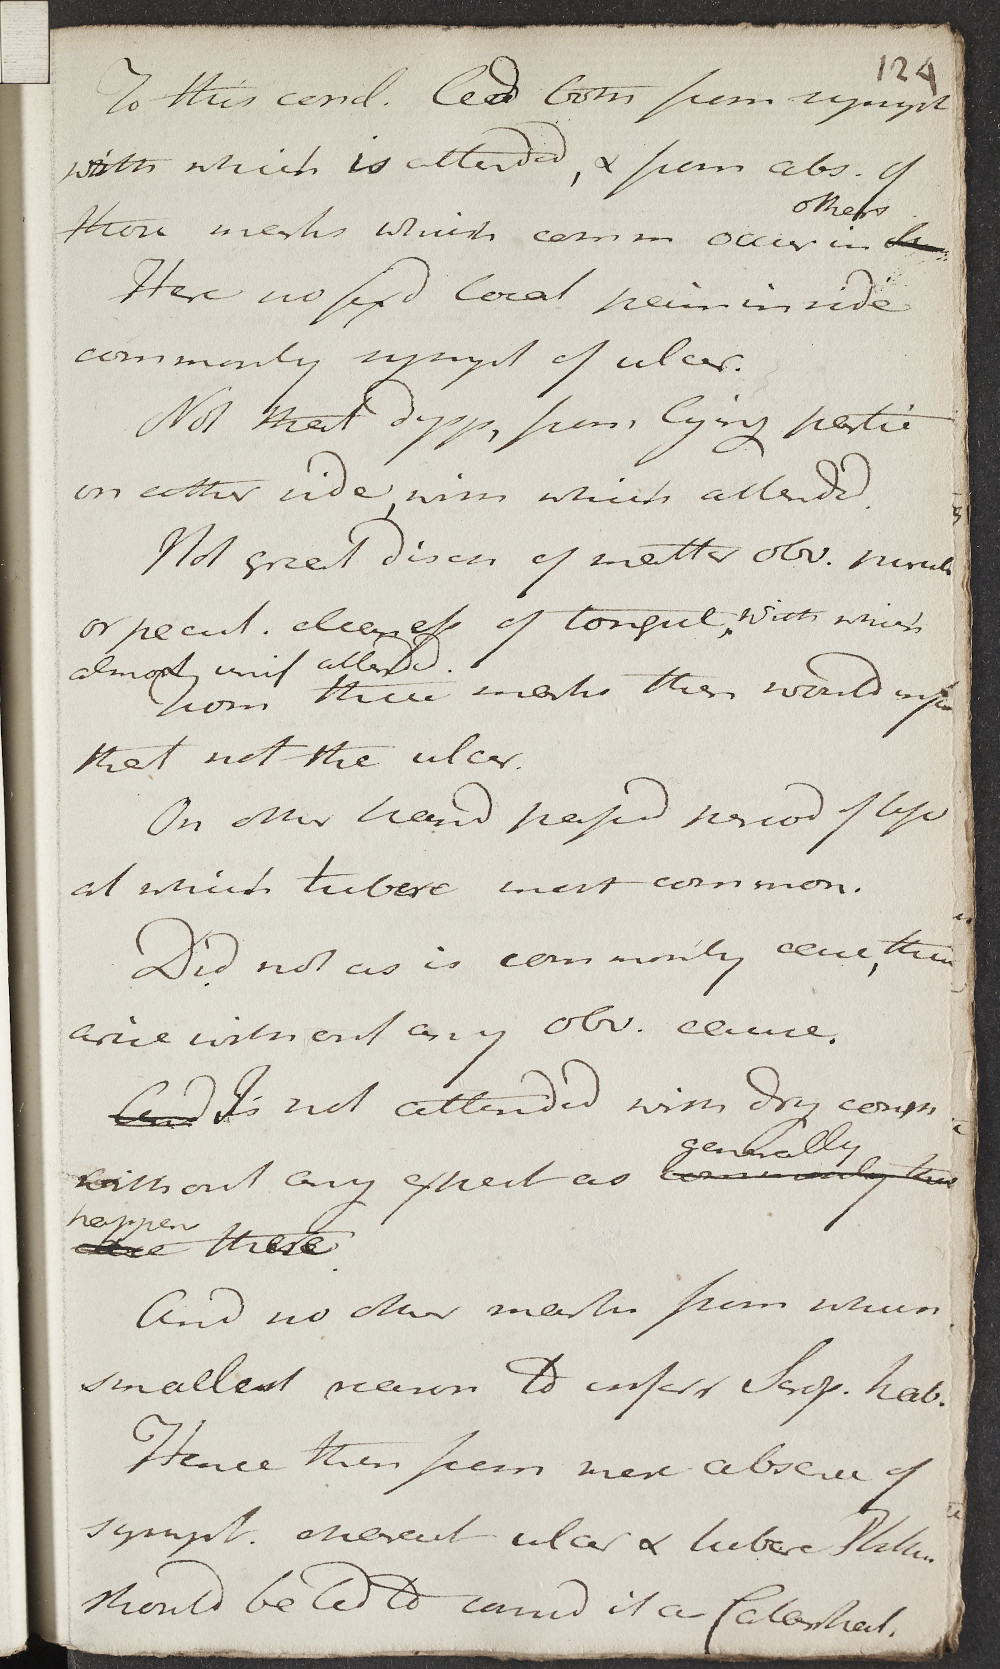 124
To this concl. lead both from sympt
with which is attended, & from abs. of
those marks which comm occur in others
Here no fixd local pain in side
commonly sympt of ulcer.
Not that dysp, from lying partic
on either side, with which attended.
Not great disch of matter obv. purul
or pecul. clearness of tongue, with which
almost unif attended.
From these marks then would infer
that not the ulcer.
On other hand passd period of life
at which tuberc most common.
Did not as is commonly case, then
arise without any obv. cause.
And Is not attended with dry cough
without any expect as commonly generally
happen are these.
And no other marks from whence
smallest reason to inferr Scrof. hab.
Hence then from mere absence of
sympt. charact ulcer & tuberc Phthis.
should be led to consid it a Catarrhal.